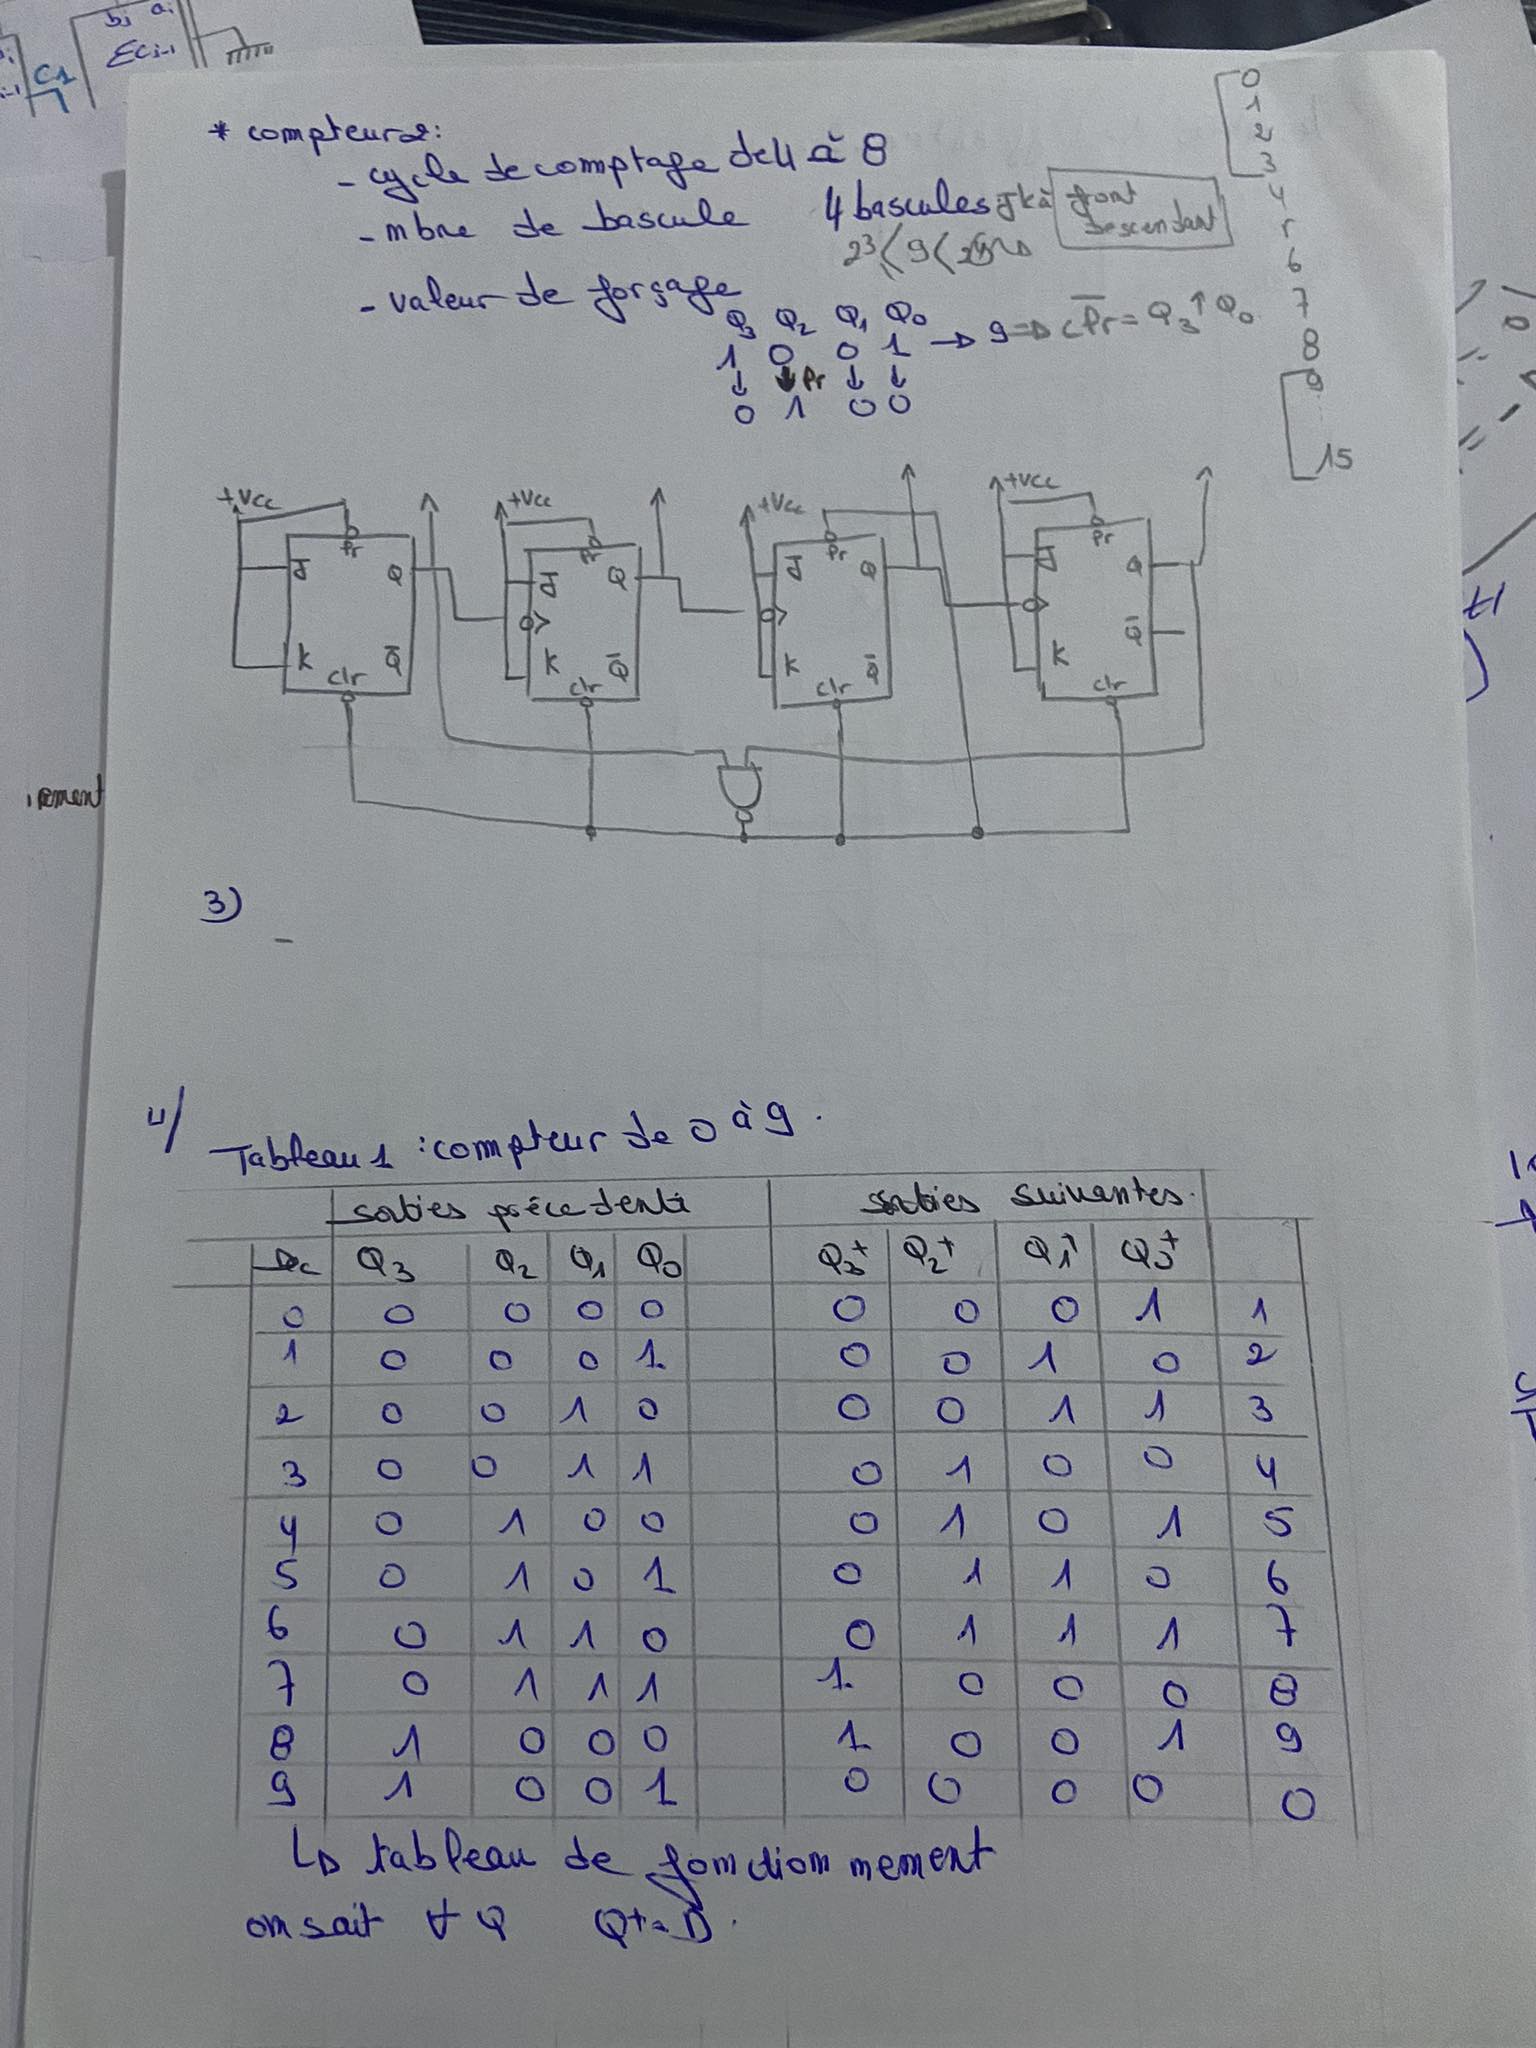 bi ai
ΣCi-1
C1
* compteur2:
- cycle de comptage de 4 à 8
- nbre de bascule 4 bascules JK à front descendant
2³ < 9 <
- valeur de forçage
Q3 Q2 Q1 Q0
1 0 0 1 → 9 => = Q3 ↑ Q0
↓ ↓ Pr ↓ ↓
0 1 0 0
0
1
2
3
4
6
7
8
9
15
+Vcc +Vcc +Vcc +Vcc
Pr Pr Pr Pr
J Q J Q J Q J Q
K Q̄ K Q̄ K Q̄ K Q̄
Clr Clr Clr Clr
3)
-
4/
Tableau 1 : compteur de 0 à 9.
sorties précedente sorties suivantes.
Dec Q3 Q2 Q1 Q0 Q3+ Q2+ Q1+
0 0 0 0 0 0 0 0 1 1
1 0 0 0 1 0 0 1 0 2
2 0 0 1 0 0 0 1 1 3
3 0 0 1 1 0 1 0 0 4
4 0 1 0 0 0 1 0 1 5
5 0 1 0 1 0 1 1 0 6
6 0 1 1 0 0 1 1 1 7
7 0 1 1 1 1 0 0 0 8
8 1 0 0 0 1 0 0 1 9
9 1 0 0 1 0 0 0 0 0
↳ tableau de fonctionnement
on sait ∀ Q Q+ = D.